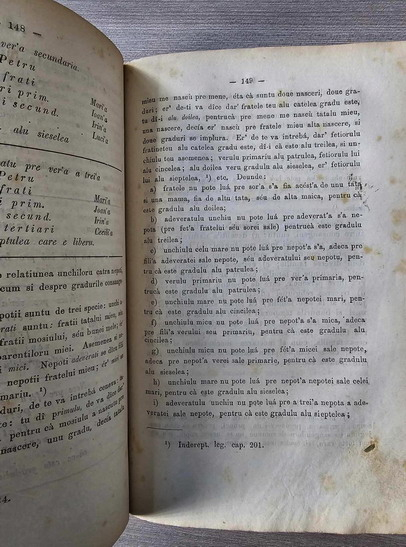 — 148 —
ver'a secundaria
Petru
frati
i prim. Mari'a
i secund. Ioan'a
Irin'a
alu sieselea Luci'a
atu pre ver'a a trei'a
Petru
frati
prim. Mari'a
secund. Joan'a
tertiari Irin'a
ptulea care e liberu. Cecili'a
relatiunea unchiloru catra nepoti,
cum si despre gradurile consange
poti suntu de trei specie:
rati suntu: fratii tatalui
fratii mosiului, séu bunei
parentiloru mici. Asemenea
mici. Nepoti adeverati se
nepotii fratelui mieu; ér'
primaru. ¹)
duri, de te va intrebá
te: tu dí primulu, de va dice
pentru că mosiulu a nascutu
nascere, unu gradu, decía
— 149 —
mieu me nascù pre mene, éta că suntu doue nasceri, doue gra-
duri; er' de-ti va dîce dar' fratele teu alu catelea gradu este,
tu dî-i alu doilea, pentrucà pre mene me nascù tatalu mieu,
una nascere, decía er' nascù pre fratele mieu alta nascere, si
doue graduri se implura. Er' de te va intrebá, dar' fetiorulu
fratinetou alu catelea gradu este, dî-i că este alu treilea, si un-
chiulu tea asemenea; verulu primariu alu patrulea, fetiorulu lui
alu cincilea; alu doilea veru gradulu alu sieselea, er' fetiorulu
lui alu sieptolea, ¹) etc. Deunde:
a) fratele nu pote luá pre sor'a s'a fia acést'a de unu tata
si una mama, fia de altu tata, séu de alta maica, pentru cà
este gradulu alu doilea;
b) adeveratulu unchiu nu pote luá pre adeverat'a s'a ne-
pota (pre fet'a fratelui séu sorei sale) pentrucà este gradulu
alu treilea;
c) unchiulu celu mare nu pote luá pre nepot'a s'a, adeca pre
fii'a adeveratei sale nepote, séu adeveratului seu nepotu, pen-
trucà este gradulu alu patrulea;
d) verulu primariu nu pote luá pre ver'a primaria, pen-
trucà este gradulu alu patrulea;
e) unchiulu mare nu pote luá pre fét'a nepotei mari, pen-
trucà este gradulu alu cincilea;
f) unchiulu micu nu pote luá pre nepot'a s'a mica, adeca
pre fiii'a verului seu primariu, pentru cà este gradulu alu
cincilea;
g) unchiulu micu nu pote luá pre fét'a micei sale nepote,
adeca pre nepot'a verei sale primarie, pentru cà este gradulu
alu sieselea;
h) unchiulu mare nu pote luá pre nepot'a nepotei sale celei
mari, pentru cà este gradulu alu sieselea;
i) adeveratulu unchiu nu pote luá pre a trei'a nepota a ade-
veratei sale nepote, pentru cà este gradulu alu sieptelea;
¹) Inderept. leg. cap. 201.